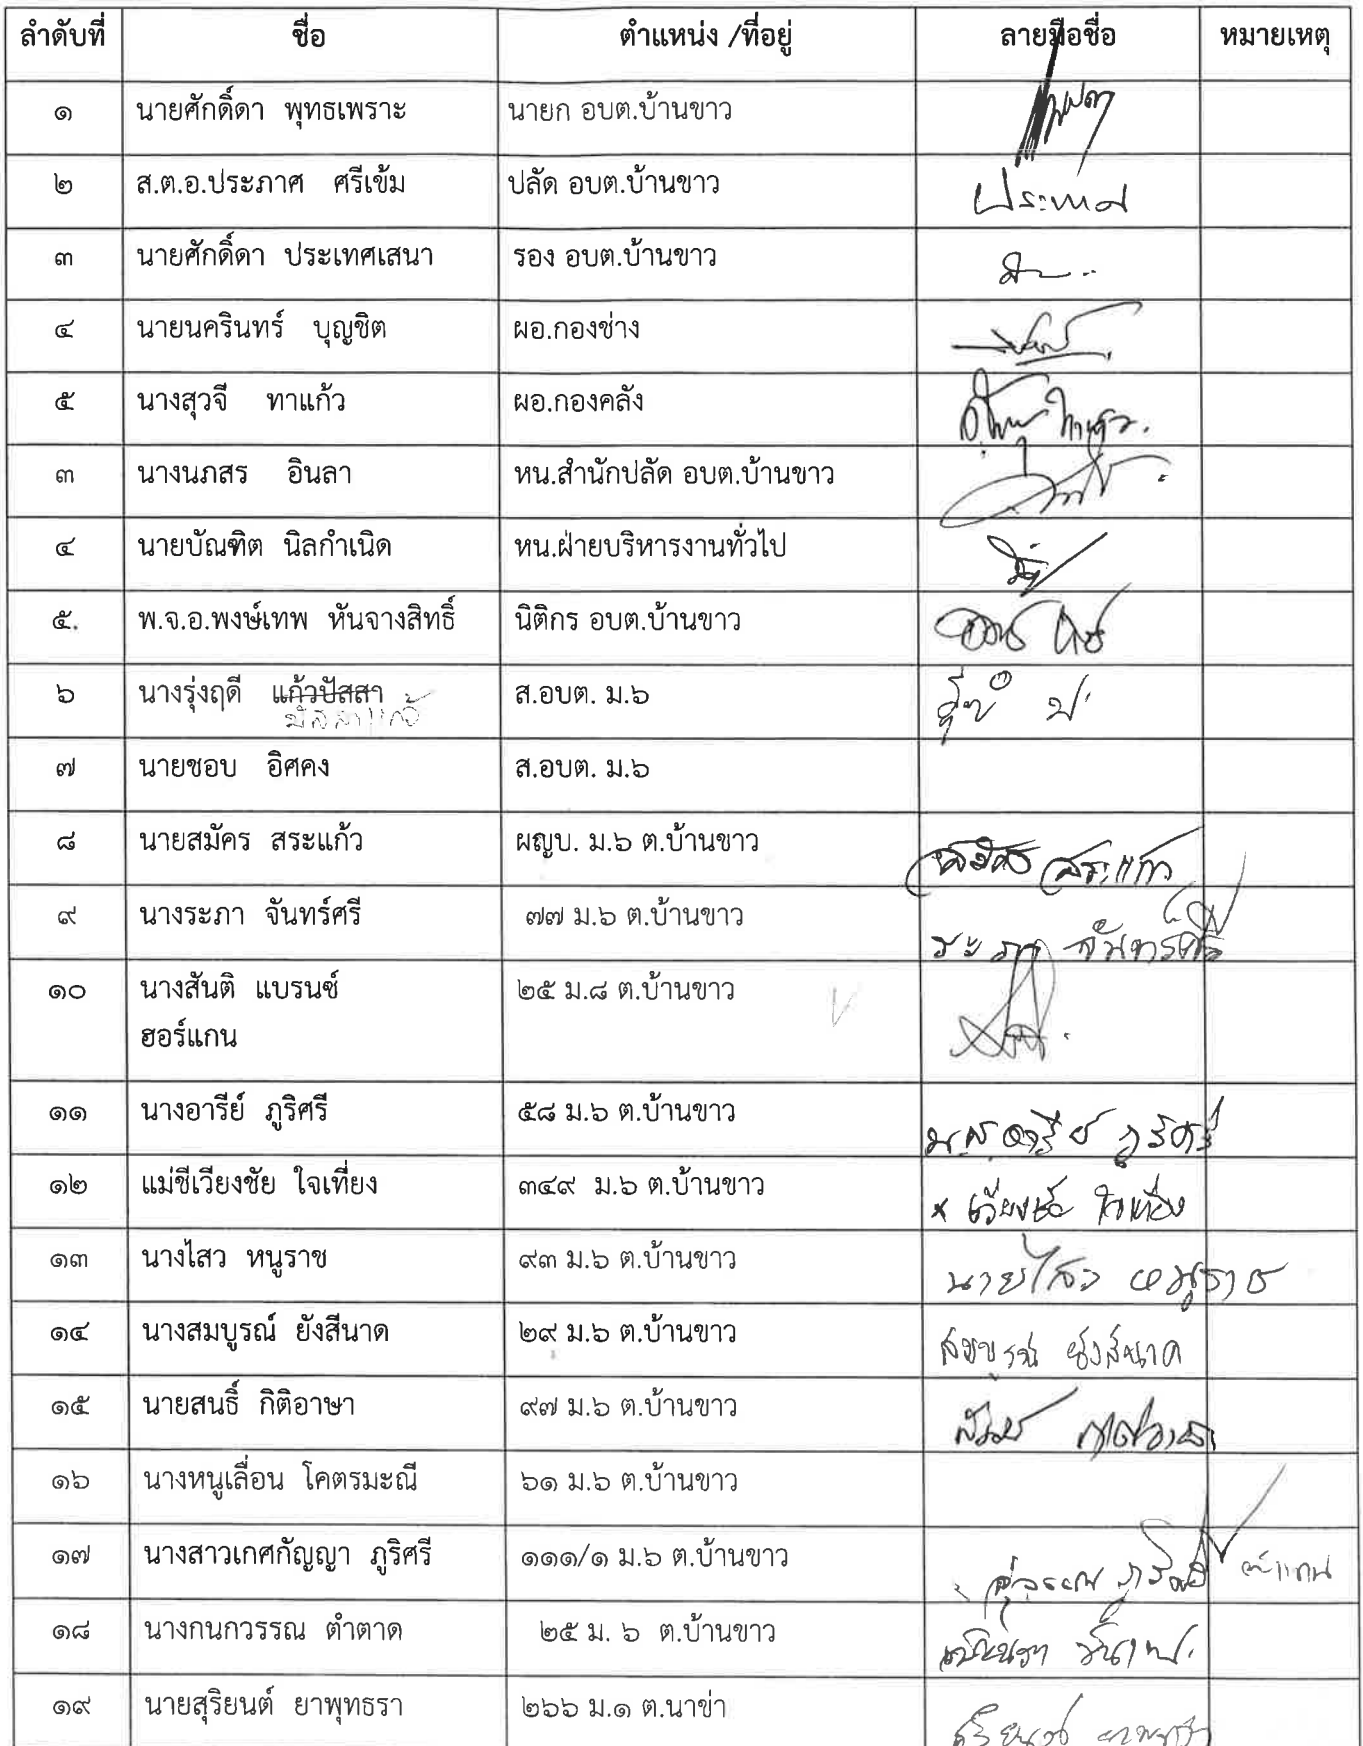 ลำดับที่ ชื่อ ตำแหน่ง /ที่อยู่ ลายมือชื่อ หมายเหตุ
๑ นายศักดิ์ดา พุทธเพราะ นายก อบต.บ้านขาว
๒ ส.ต.อ.ประภาศ ศรีเข้ม ปลัด อบต.บ้านขาว ประภาศ
๓ นายศักดิ์ดา ประเทศเสนา รอง อบต.บ้านขาว
๔ นายนครินทร์ บุญชิต ผอ.กองช่าง
๕ นางสุวจี ทาแก้ว ผอ.กองคลัง
๓ นางนภสร อินลา หน.สำนักปลัด อบต.บ้านขาว
๔ นายบัณฑิต นิลกำเนิด หน.ฝ่ายบริหารงานทั่วไป
๕. พ.จ.อ.พงษ์เทพ หันจางสิทธิ์ นิติกร อบต.บ้านขาว
๖ นางรุ่งฤดี แก้วปัสสา ส.อบต. ม.๖
ปัสสาแก้ว
๗ นายชอบ อิศคง ส.อบต. ม.๖
๘ นายสมัคร สระแก้ว ผญบ. ม.๖ ต.บ้านขาว สมัคร สระแก้ว
๙ นางระภา จันทร์ศรี ๗๗ ม.๖ ต.บ้านขาว ระภา จันทร์ศรี
๑๐ นางสันติ แบรนซ์ ๒๕ ม.๘ ต.บ้านขาว
ฮอร์แกน
๑๑ นางอารีย์ ภูริศรี ๕๘ ม.๖ ต.บ้านขาว อารีย์ ภูริศรี
๑๒ แม่ชีเวียงชัย ใจเที่ยง ๓๔๙ ม.๖ ต.บ้านขาว × เวียงชัย ใจเที่ยง
๑๓ นางไสว หนูราช ๙๓ ม.๖ ต.บ้านขาว นายไสว หนูราช
๑๔ นางสมบูรณ์ ยังสีนาด ๒๙ ม.๖ ต.บ้านขาว สมบูรณ์ ยังสีนาด
๑๕ นายสนธิ์ กิติอาษา ๙๗ ม.๖ ต.บ้านขาว
๑๖ นางหนูเลื่อน โคตรมะณี ๖๑ ม.๖ ต.บ้านขาว
๑๗ นางสาวเกศกัญญา ภูริศรี ๑๑๑/๑ ม.๖ ต.บ้านขาว ภูริศรี
๑๘ นางกนกวรรณ ตำตาด ๒๕ ม. ๖ ต.บ้านขาว
๑๙ นายสุริยนต์ ยาพุทธรา ๒๖๖ ม.๑ ต.นาข่า